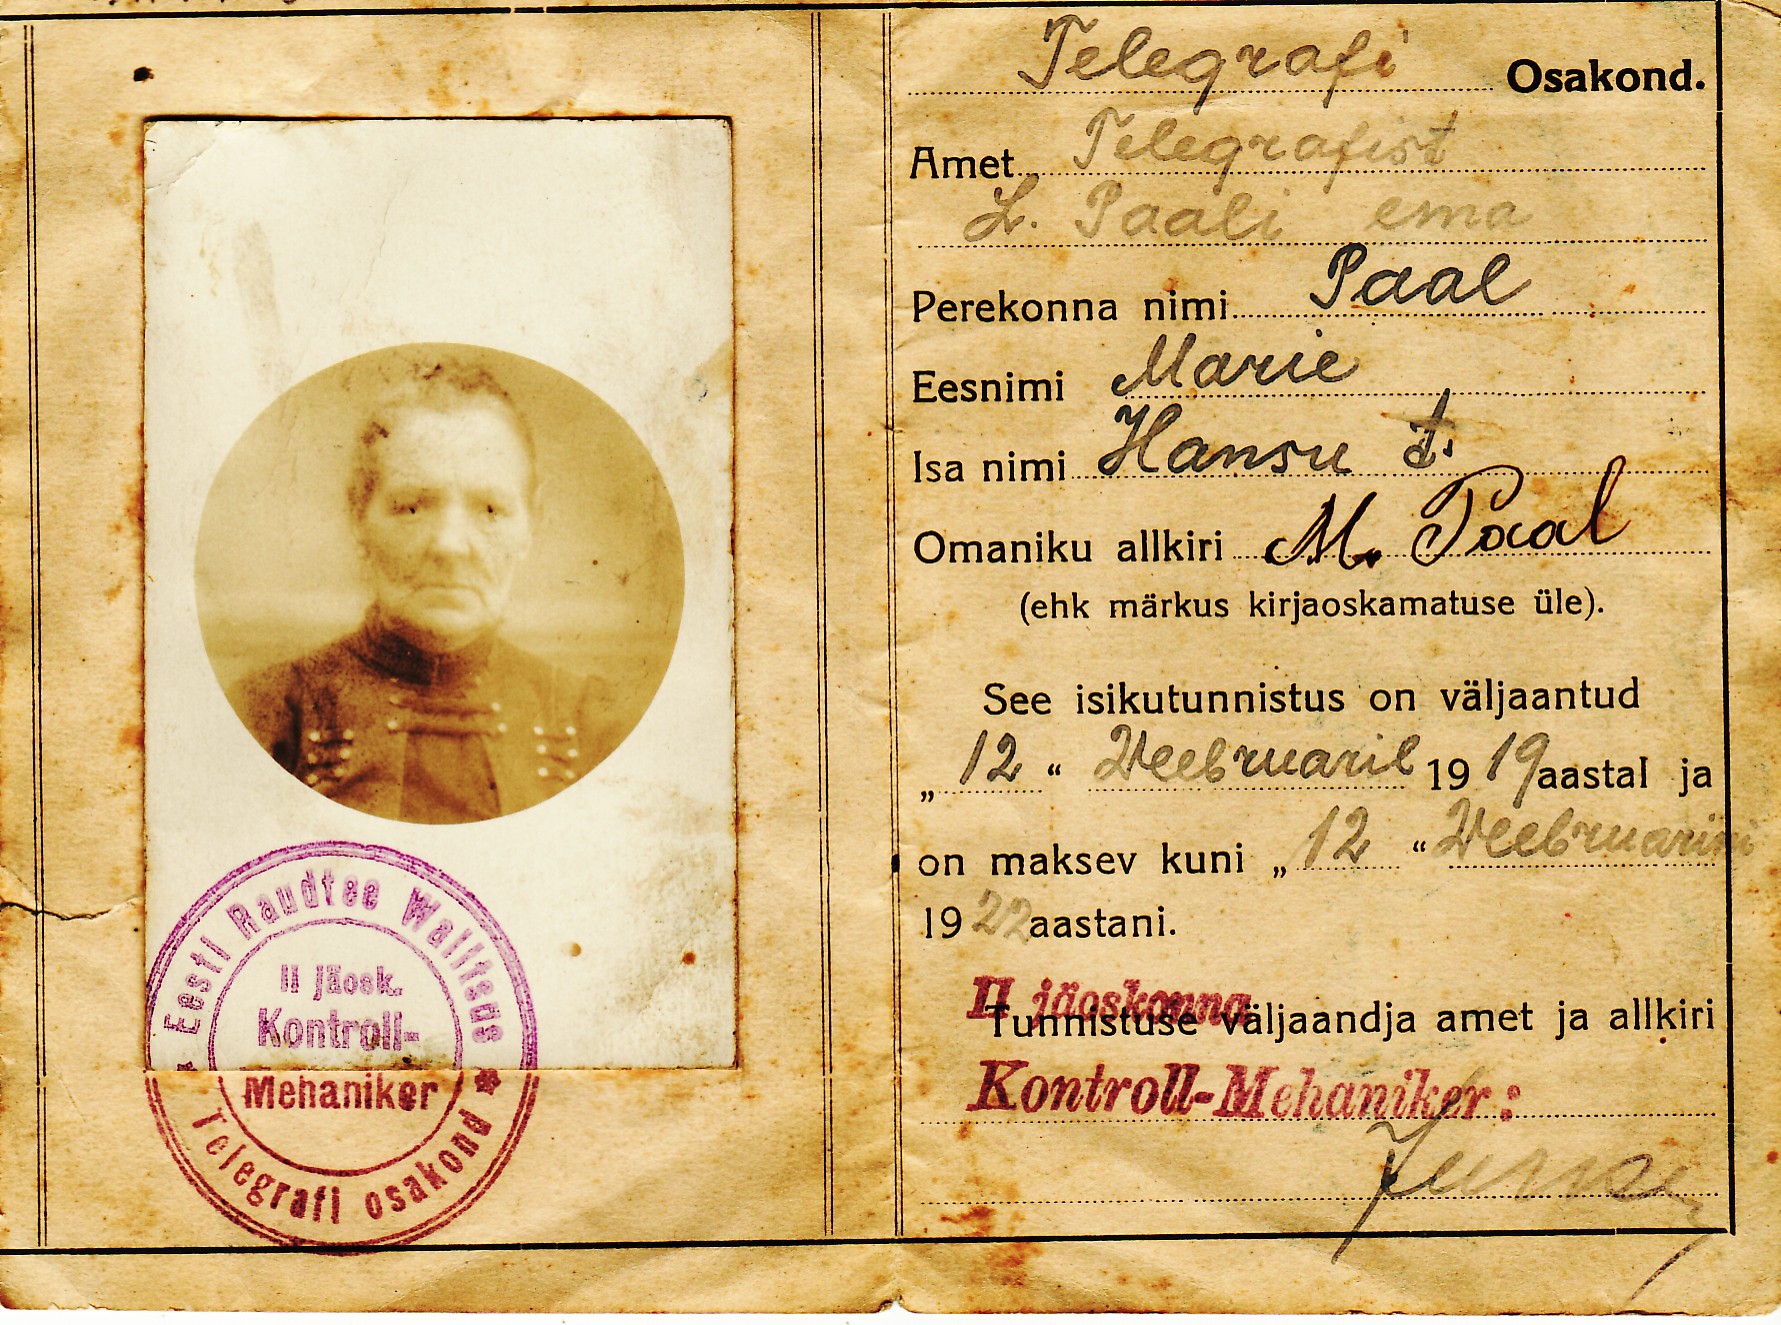 Telegrafi Osakond.
Amet Telegrafist
L. Paali ema
Perekonna nimi Paal
Eesnimi Marie
Isa nimi Hansu t.
Omaniku allkiri M. Paal
(ehk märkus kirjaoskamatuse üle).
See isikutunnistus on väljaantud
„12“ Veebruaril 1919 aastal ja
on maksev kuni „12“ Veebruarini
1922 aastani.
II jäoskonna
Tunnistuse väljaandja amet ja allkiri
Kontroll-Mehaniker:
Eesti Raudtee Walitsus
II jäosk.
Kontroll-
Mehaniker
Telegrafi osakond